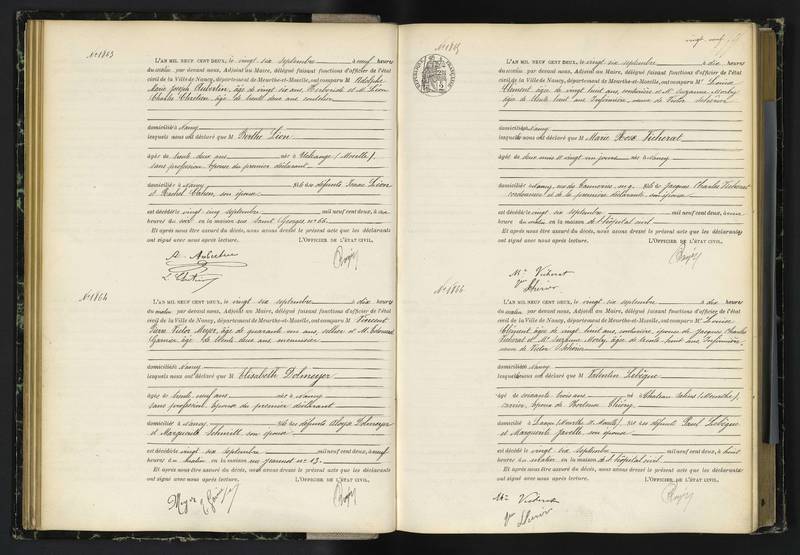 N° 1863
L'AN MIL NEUF CENT DEUX, le vingt six septembre à neuf heures
du matin par devant nous, Adjoint au Maire, délégué faisant fonctions d'officier de l'état
civil de la Ville de Nancy, département de Meurthe-et-Moselle, ont comparu M Adolphe
Marie Joseph Aubertin, âgé de vingt six ans, et M. Léon
Charles Chrétien âgé de trente deux ans
domiciliés à Nancy
lesquels nous ont déclaré que M Berthe Lion
âgée de trente deux ans née à (Moselle),
sans profession, épouse du premier déclarant
domiciliée à Nancy fille des défunts Lion
et Rachel Cahen, son épouse
est décédée le vingt cinq septembre mil neuf cent deux, à six
heures du soir en la maison rue Saint Georges n° 66
Et après nous être assuré du décès, nous avons dressé le présent acte que les déclarants
ont signé avec nous après lecture. L'OFFICIER DE L'ÉTAT CIVIL,
A. Aubertin
N° 1864
L'AN MIL NEUF CENT DEUX, le vingt six septembre à dix heures
du matin par devant nous, Adjoint au Maire, délégué faisant fonctions d'officier de l'état
civil de la Ville de Nancy, département de Meurthe-et-Moselle, ont comparu M Vincent
Pierre Victor Meyer, âgé de quarante un ans, sellier et M. Edmond
Garnier âgé de trente deux ans menuisier
domiciliés à Nancy
lesquels nous ont déclaré que M Elisabeth Dolmeyer
âgée de trente neuf ans née à Nancy
sans profession, épouse du premier déclarant
domiciliée à Nancy fille des défunts Aloyse Dolmeyer
et Marguerite Schmitt son épouse
est décédée le vingt six septembre mil neuf cent deux, à neuf
heures du matin en la maison rue Jeannot n° 13
Et après nous être assuré du décès, nous avons dressé le présent acte que les déclarants
ont signé avec nous après lecture. L'OFFICIER DE L'ÉTAT CIVIL,
Meyer
vingt neuf
N° 1865
L'AN MIL NEUF CENT DEUX, le vingt six septembre à dix heures
du matin par devant nous, Adjoint au Maire, délégué faisant fonctions d'officier de l'état
civil de la Ville de Nancy, département de Meurthe-et-Moselle, ont comparu Me Louise
Clément, âgée de vingt huit ans, couturière et Me Suzanne Morby
âgée de trente huit ans Infirmière, veuve de Victor
domiciliées à Nancy
lesquelles nous ont déclaré que M Marie Rose Vicherat
âgée de deux mois et vingt un jours née à Nancy
domiciliée à Nancy, rue des fille de Jacques Charles Vicherat
cordonnier et de la première déclarante son épouse
est décédée le vingt six septembre mil neuf cent deux, à une
heure du matin en la maison de l'hôpital civil
Et après nous être assuré du décès, nous avons dressé le présent acte que les déclarants
ont signé avec nous après lecture. L'OFFICIER DE L'ÉTAT CIVIL,
Me Vicherat
N° 1866
L'AN MIL NEUF CENT DEUX, le vingt six septembre à dix heures
du matin par devant nous, Adjoint au Maire, délégué faisant fonctions d'officier de l'état
civil de la Ville de Nancy, département de Meurthe-et-Moselle, ont comparu Me Louise
Clément âgée de vingt huit ans, couturière, épouse de Jacques Charles
Vicherat et Me Suzanne Morby, âgée de trente huit ans Infirmière,
veuve de Victor
domiciliées à Nancy
lesquelles nous ont déclaré que M Valentin Lebègue
âgé de soixante trois ans né à Château Salins (Meurthe),
époux de
domicilié à (Meurthe et Moselle) fils des défunts Paul Lebègue
et Marguerite son épouse
est décédé le vingt six septembre mil neuf cent deux, à huit
heures du matin en la maison de l'hôpital civil
Et après nous être assuré du décès, nous avons dressé le présent acte que les déclarants
ont signé avec nous après lecture. L'OFFICIER DE L'ÉTAT CIVIL,
Me Vicherat